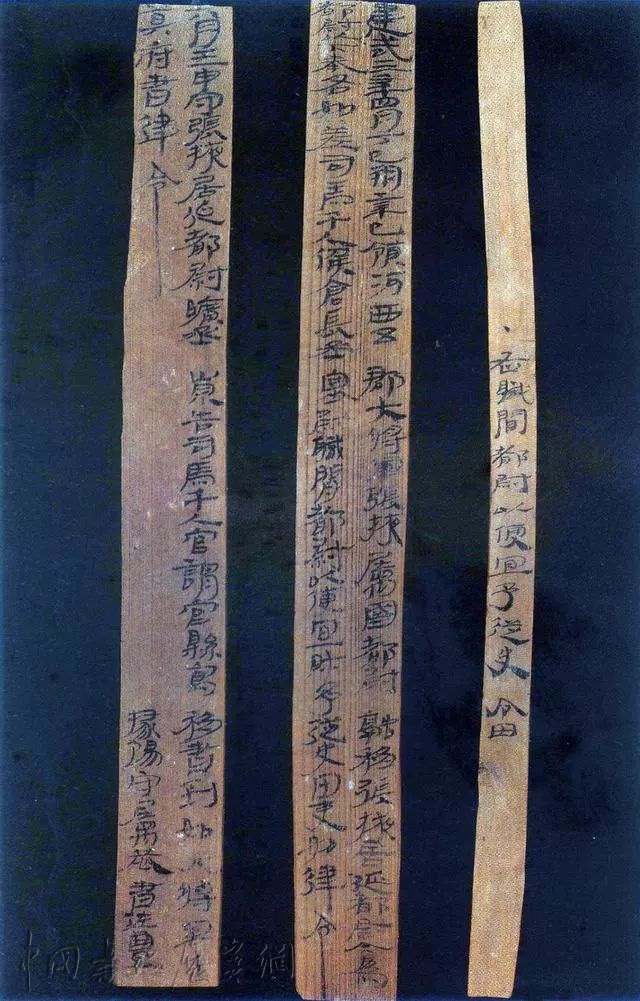 ·右職間都尉以便宜予從史令田
建武三年四月丁巳朔辛巳領河西五郡大將軍張掖屬國都尉融移張掖居延都尉今為
都尉以下奉各如差司馬千人候倉長丞塞尉職間都尉以便宜財予從史田吏如律令
六月壬申守張掖居延都尉曠丞崇告司馬千人官謂官縣寫移書到如大將軍
莫府書律令 掾陽守屬恭書佐豐
中國 網